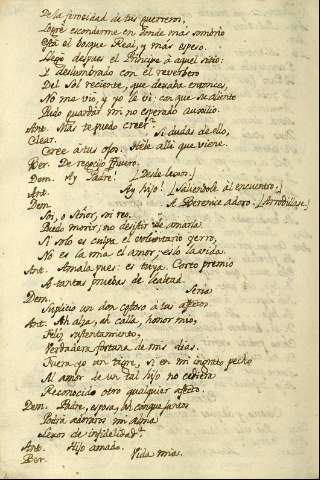 De la ferocidad de tus guerreros,
Logré esconderme en donde mas sombrio
Está el bosque Real, y mas espeso.
Llegó despues el Principe á aquel sitio:
I deslumbrado con el reverbero
Del Sol reciente, que dexaba entonces,
No me vió, y yo le vi: con que su aliento
Pudo guardar mi no esperado auxilio.
Ant. Mas te puedo creer?
Clear. Si dudas de ello,
Cree á tus ojos. Hele alli que viene.
Ber. De regocijo muero.
Dem. Ay Padre! [Desde lexos.]
Ant. Ay hijo! [Saliendole al encuentro.]
Dem. A Berenice adoro. [Arrodillase.]
Soi, o Señor, mi reo.
Puedo morir; no desistir de amarla
Si solo es culpa el voluntario yerro,
No es la mia el amor; ello la vida.
Ant. Amala pues: es tuya. Corto premio
A tantas pruebas de lealtad.
Dem. Seria
Suplicio un don costoso á tus afectos
Ant. Ah alza, ah calla, honor mio,
Feliz sustentamiento,
Verdadera fortuna de mis dias.
Fuera yo un tigre, si en mi ingrato pecho
Al amor de un tal hijo no cediera
Reconocido otro qualquier afecto.
Dem. Padre, esposa, ah conque juntos
Podrá adoraros mi alma
Lexos de infidelidad!
Ant. Hijo amado.
Ber. Vida mia.